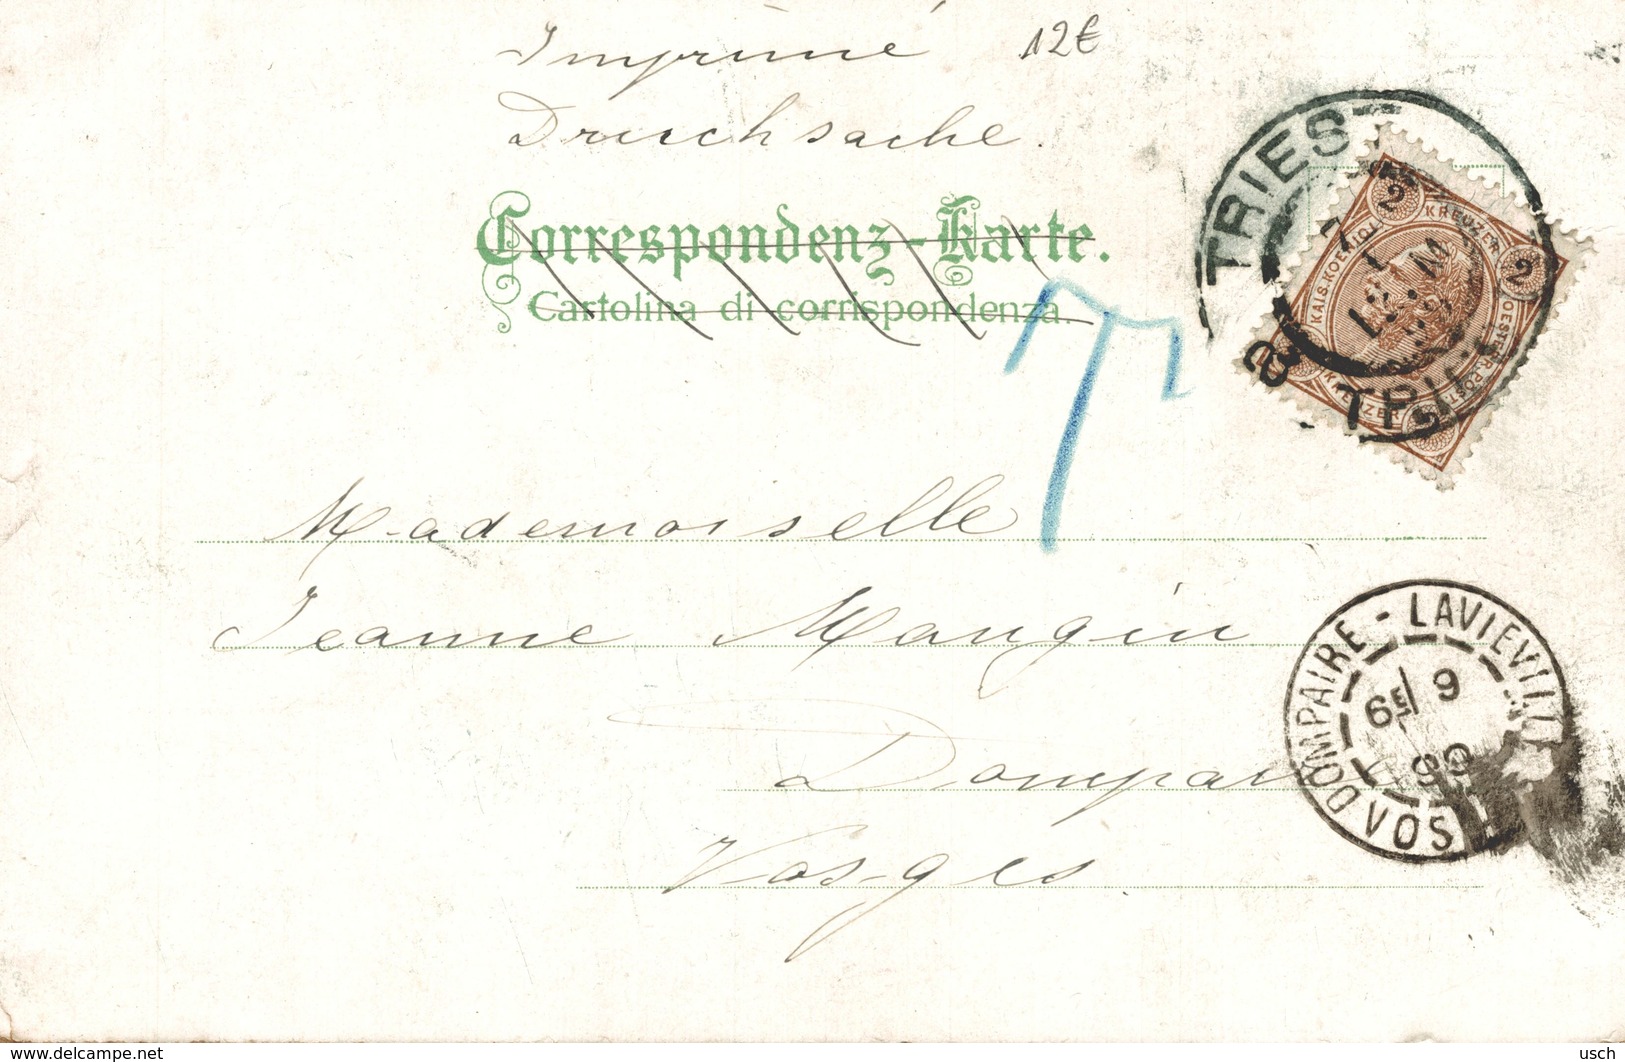 Imprimé 12€
Drucksache.
Correspondenz-Karte.
Cartolina di corrispondenza.
TRIEST
2 KREUZER 2
KAIS. KOENIGL. OESTERR. POST
KREUZER
Mademoiselle
Jeanne Mangin
DOMPAIRE - LAVIEVILL
6E 9
99
VOS
Vosges
www.delcampe.net
usch